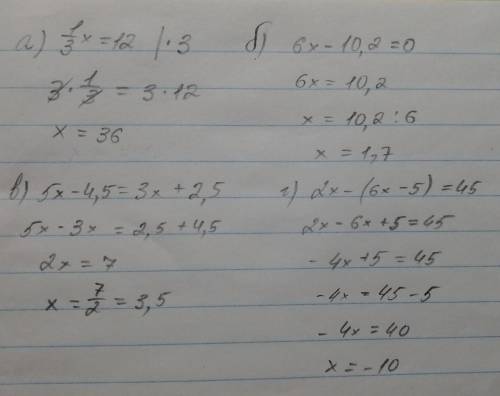 а) 1/3 x = 12 | · 3
3 · 1/3 = 3 · 12
x = 36
б) 6x - 10,2 = 0
6x = 10,2
x = 10,2 : 6
x = 1,7
в) 5x - 4,5 = 3x + 2,5
5x - 3x = 2,5 + 4,5
2x = 7
x = 7/2 = 3,5
г) 2x - (6x - 5) = 45
2x - 6x + 5 = 45
- 4x + 5 = 45
- 4x = 45 - 5
- 4x = 40
x = - 10